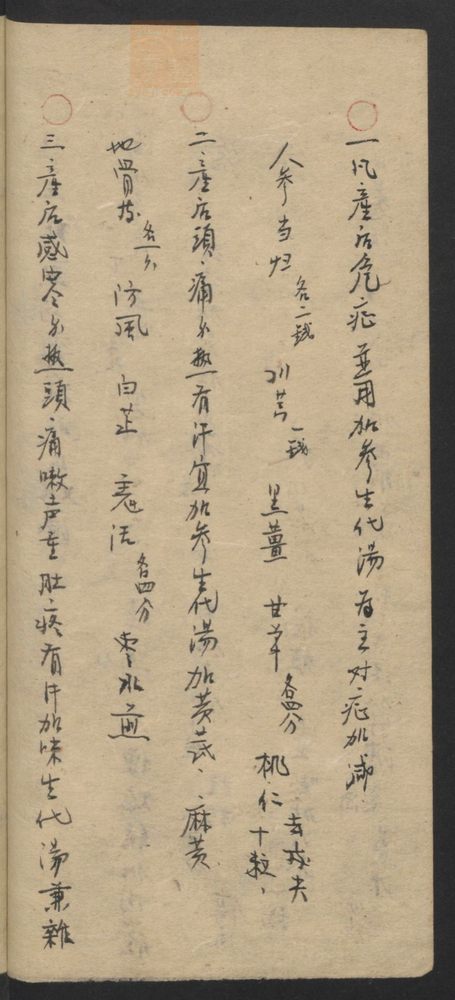 一凡產后危症並用加參生化湯為主对症加減
人參当归各二錢川芎一錢黑薑甘草各四分桃仁十粒去皮尖
二產后頭痛身热有汗宜加參生化湯加黄芪、麻黄、
地骨皮各一分防風白芷羌活各四分枣水煎
三產后感寒身热頭痛嗽声重肚疼有汗加味生化湯兼雜